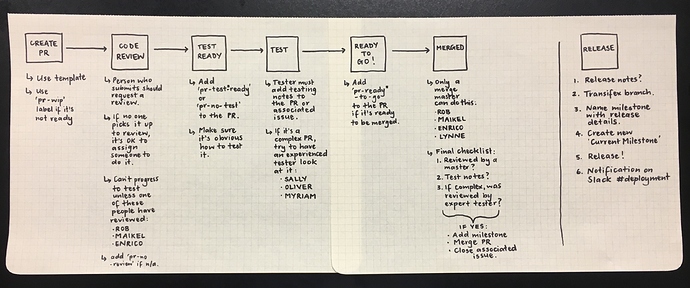 CREATE
PR
↳ Use template
↳ Use
'pr-wip'
label if it's
not ready
CODE
REVIEW
↳ Person who
submits should
request a
review.
↳ If no one
picks it up
to review,
it's OK to
assign
someone to
do it.
↳ Can't progress
to test
unless one
of these
people have
reviewed:
· ROB
· MAIKEL
· ENRICO
↳ add 'pr-no
-review' if n/a.
TEST
READY
↳ Add
'pr-test-ready'
or
'pr-no-test'
to the PR.
↳ Make sure
it's obvious
how to test
it.
TEST
↳ Tester must
add testing
notes to
the PR or
associated
issue.
↳ If it's a
complex PR,
try to have
an experienced
tester look
at it:
· SALLY
· OLIVER
· MYRIAM
READY
TO
GO!
↳ Add
'pr-ready-
-to-go'
to the PR
if it's ready
to be merged.
MERGED
↳ Only a
merge
master
can do this:
· ROB
· MAIKEL
· ENRICO
· LYNNE
↳ Final checklist:
1. Reviewed by a
master?
2. Test notes?
3. If complex, was
reviewed by
expert tester?
IF YES:
· Add milestone
· Merge PR
· Close associated
issue.
RELEASE
1. Release notes?
2. Transifex branch.
3. Name milestone
with release
details.
4. Create new
'Current Milestone'
5. Release!
6. Notification on
Slack #deployment